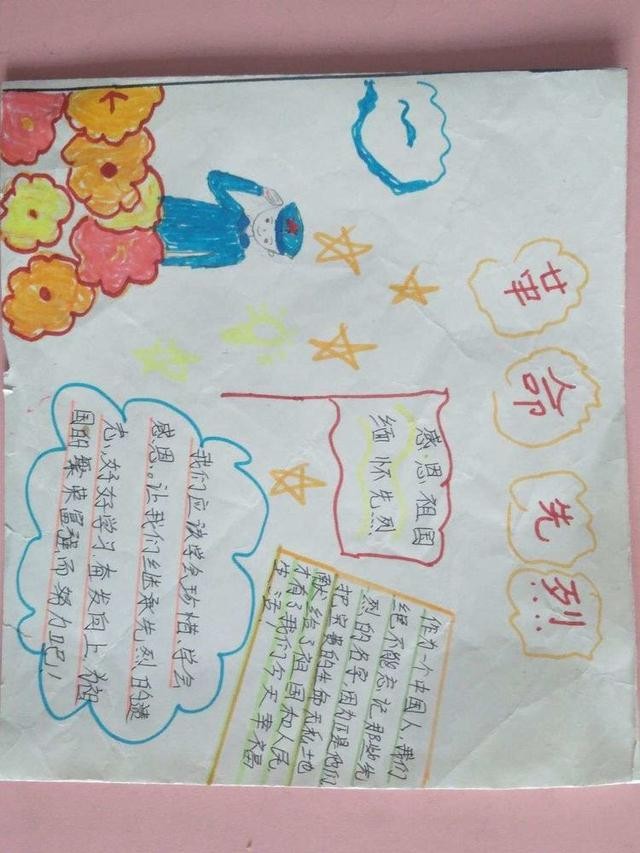 革命先烈
感恩祖国
缅怀先烈
作为一个中国人,我们
绝不能忘记那些先
烈的名字,因为正是他们
把宝贵的生命无私地
献给了祖国和人民,
才有了我们今天幸福
生活。
我们应该学会珍惜.学会
感恩..让我们继承先烈的遗
志,好好学习.奋发向上 为祖
国的繁荣富强而努力吧!